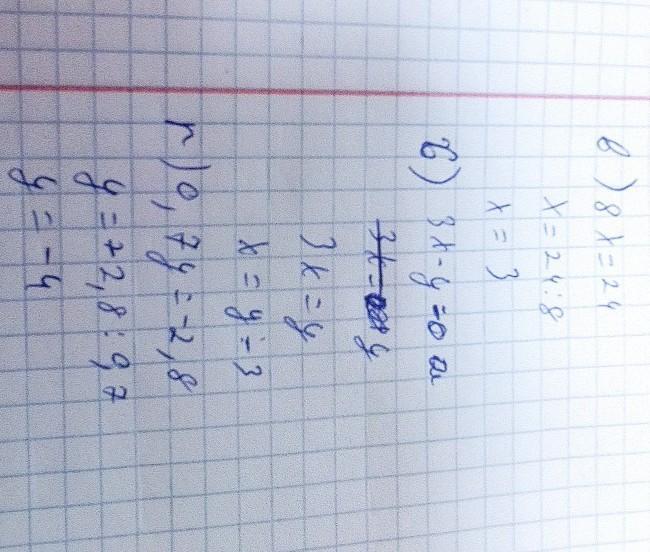 в) 8x=24
x=24:8
x=3
б) 3x-y=0 а
3x=y
x=y÷3
г) 0,7y=-2,8
y=+2,8:0,7
y=-4